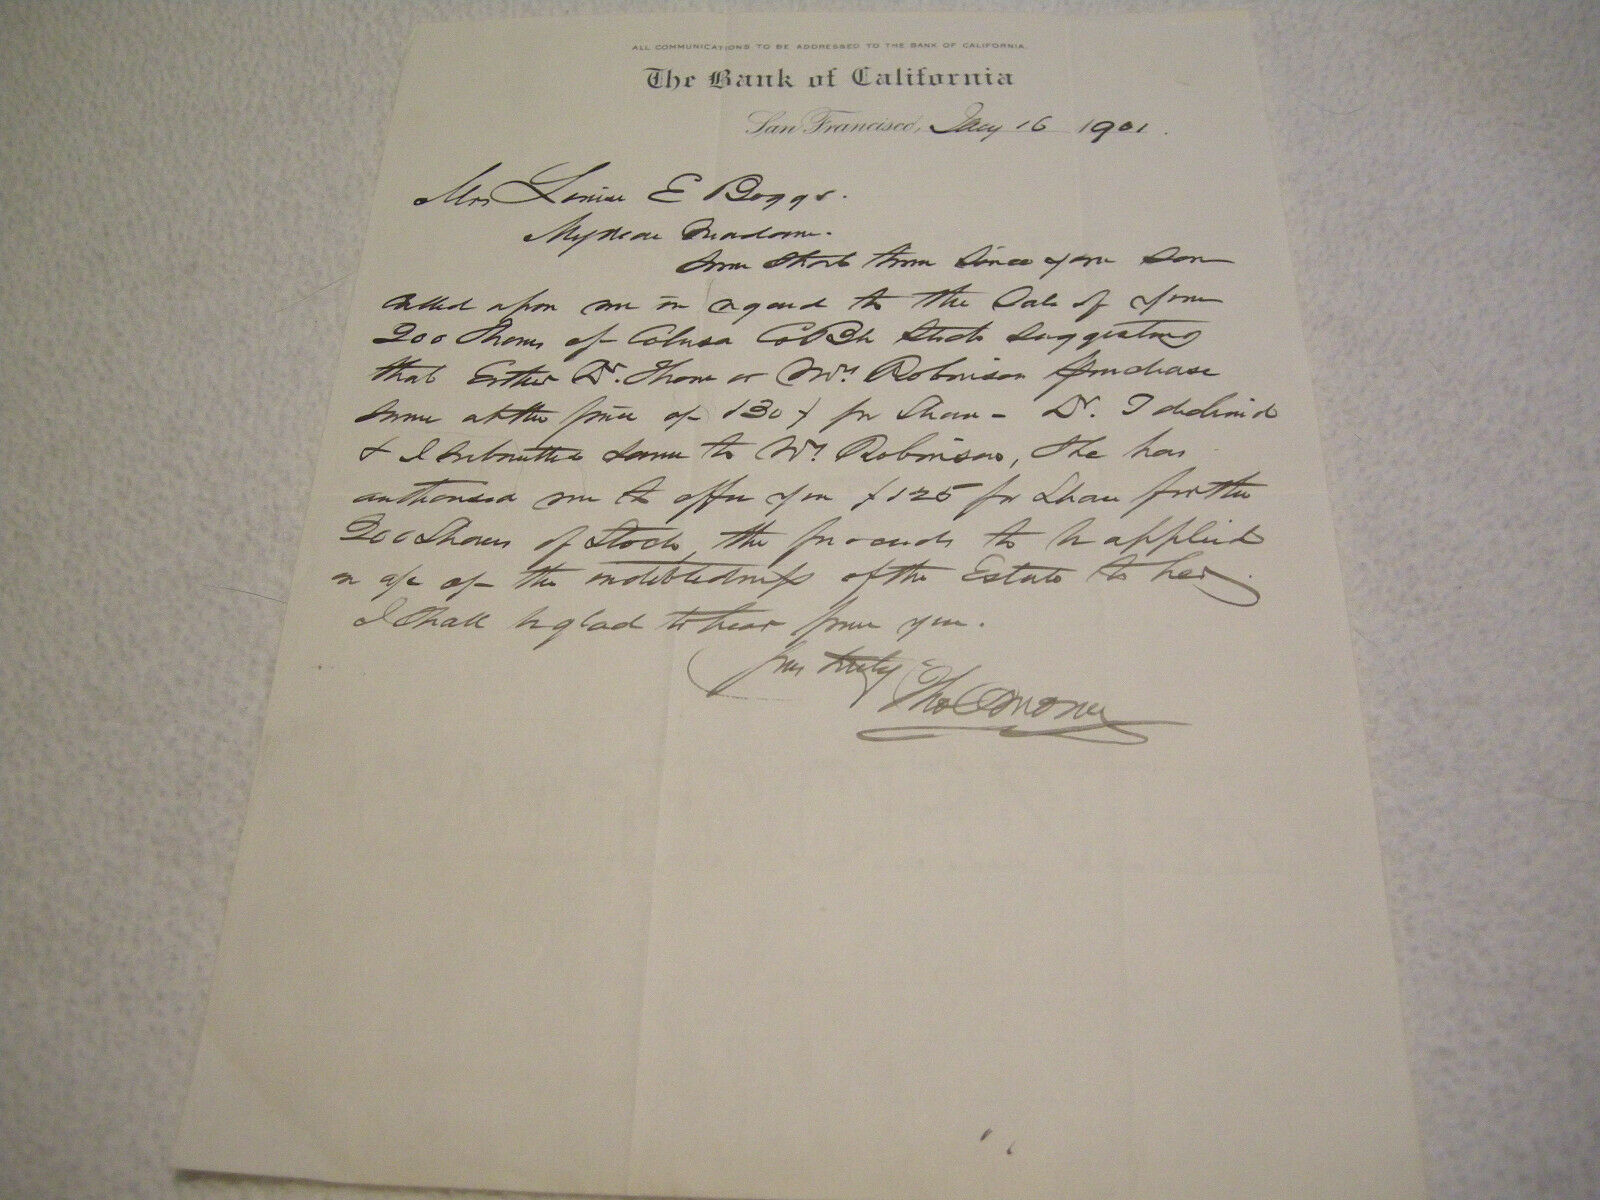 ALL COMMUNICATIONS TO BE ADDRESSED TO THE BANK OF CALIFORNIA.
The Bank of California
San Francisco, Jany 16 1901.
Mrs Louise E Boggs.
My Dear Madam.
Some Short time Since your Son
called upon me in regard to the Sale of your
200 Shares of Colusa Co Bk Stock suggesting
that Either Dr. or Mrs Robinson purchase
Same at the price of 130 pr Share - Dr. T declined
& I submitted Same to Mrs Robinson, She has
authorised me to offer you $125 pr Share for the
200 Shares of Stock, the proceeds to be applied
on a/c of the indebtedness of the Estate to her.
I Shall be glad to hear from you.
Yours truly
Thos